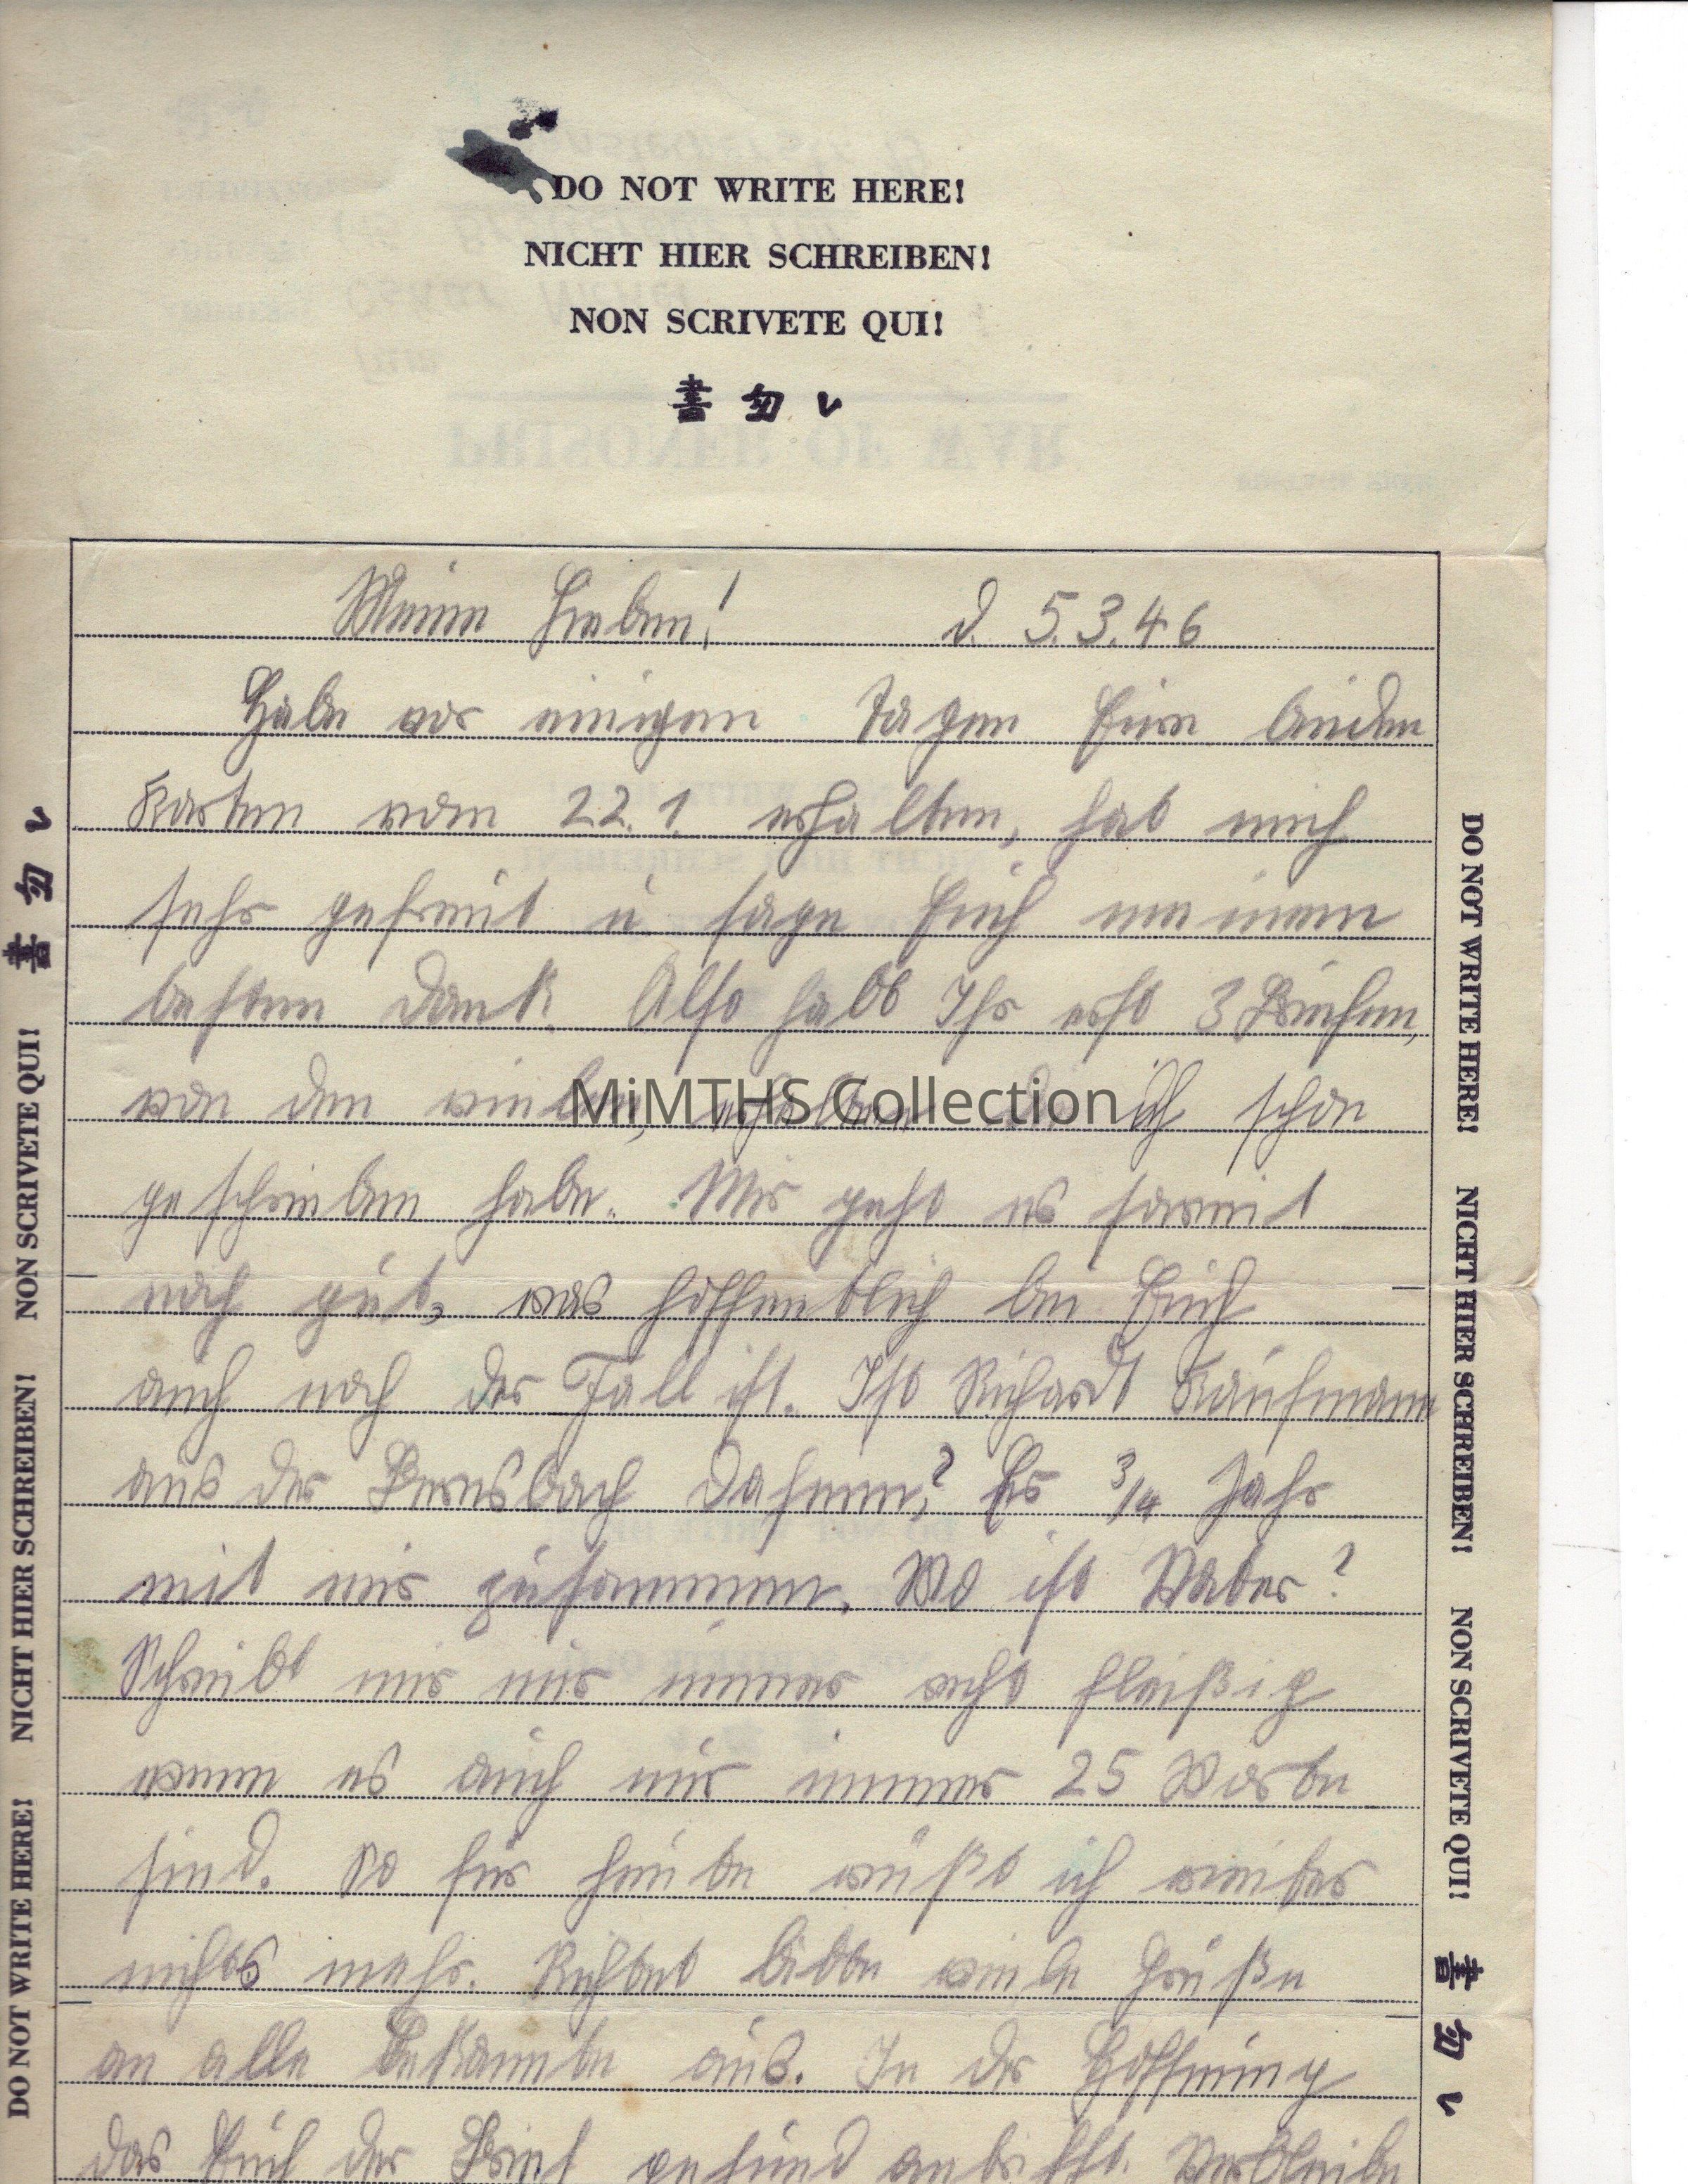 DO NOT WRITE HERE!
NICHT HIER SCHREIBEN!
NON SCRIVETE QUI!
書 勿 レ
Meine Lieben! d. 5.3.46
Habe vor einigen Tagen Eure beiden
Karten vom 22.1. erhalten, hat mich
sehr gefreut u. sage Euch meinen
besten Dank. Also habt Ihr erst 3 Briefen,
von den vielen, erhalten die ich schon
geschrieben habe. Mir geht es soweit
noch gut, was hoffentlich bei Euch
auch noch der Fall ist. Ist Richardt Kaufmann
aus der Bernsbach daheim? Er 3/4 Jahr
mit mir zusammen. Wo ist Vater?
Schreibt mir nur immer recht fleißig
wenn es auch nur immer 25 Worte
sind. So für heute wüßt ich weiter
nichts mehr. Richtet bitte viele Grüße
an alle Bekannte aus. In der Hoffnung
das Euch der Brief gesund antrifft. Verbleibe
MiMTHS Collection
DO NOT WRITE HERE! NICHT HIER SCHREIBEN! NON SCRIVETE QUI! 書 勿 レ
DO NOT WRITE HERE! NICHT HIER SCHREIBEN! NON SCRIVETE QUI! 書 勿 レ